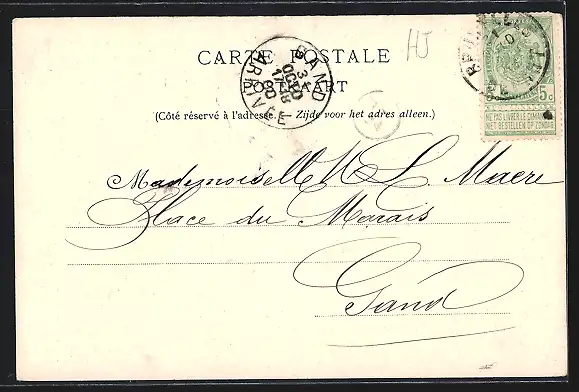 CARTE POSTALE
POSTKAART
(Côté réservé à l'adresse. — Zijde voor het adres alleen.)
GAND
31
OCTO
17-18
ARRIVÉE
5 c
5c
NE PAS LIVRER LE DIMANCHE
NIET BESTELLEN OP ZONDAG
Mademoiselle M L Maere
Place du Marais
Gand